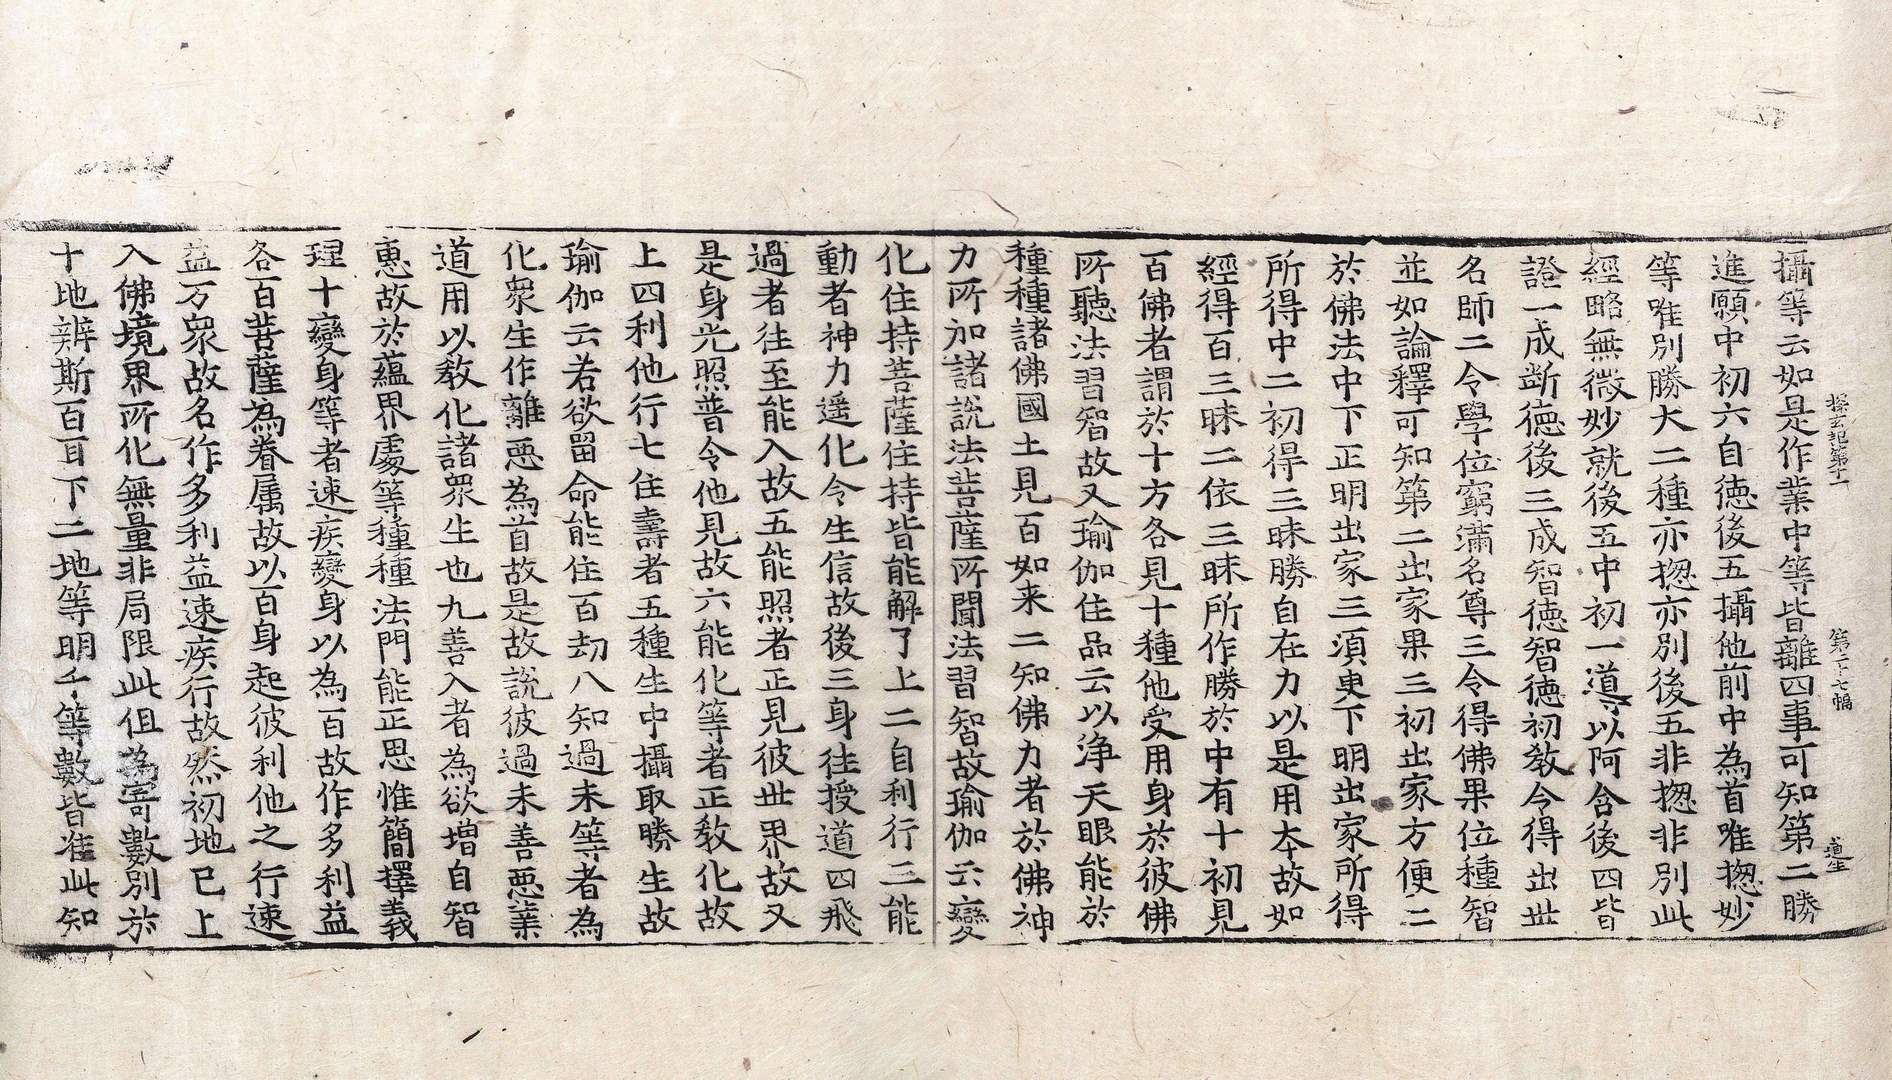 探玄記第十一 第二十七幅 道生
攝等云如是作業中等皆離四事可知第二勝
進願中初六自徳後五攝他前中為首唯揔妙
等唯別勝大二種亦揔亦別後五非揔非別此
經略無微妙就後五中初一導以阿含後四皆
證一成断徳後三成智徳智徳初教令得出世
名師二令學位窮滿名尊三令得佛果位種智
並如論釋可知第二出家果三初出家方便二
於佛法中下正明出家三湏更下明出家所得
所得中二初得三昧勝自在力以是用夲故如
經得百三昧二依三昧所作勝於中有十初見
百佛者謂於十方各見十種他受用身於彼佛
所聽法習智故又瑜伽住品云以浄天眼能於
種種諸佛國土見百如来二知佛力者於佛神
力所加諸說法菩薩所聞法習智故瑜伽云變
化住持菩薩住持皆能解了上二自利行三能
動者神力遥化令生信故後三身往授道四飛
過者往至能入故五能照者正見彼世界故又
是身光照普令他見故六能化等者正教化故
上四利他行七住壽者五種生中攝取勝生故
瑜伽云若欲留命能住百劫八知過未等者為
化衆生作離悪為首故是故說彼過未善悪業
道用以教化諸衆生也九善入者為欲增自智
惠故於蘊界處等種種法門能正思惟簡擇義
理十變身等者速疾變身以為百故作多利益
各百菩薩為眷属故以百身起彼利他之行速
益万衆故名作多利益速疾行故然初地已上
入佛境界所化無量非局限此但為寄數別於
十地辨斯百耳下二地等明千等數皆准此知